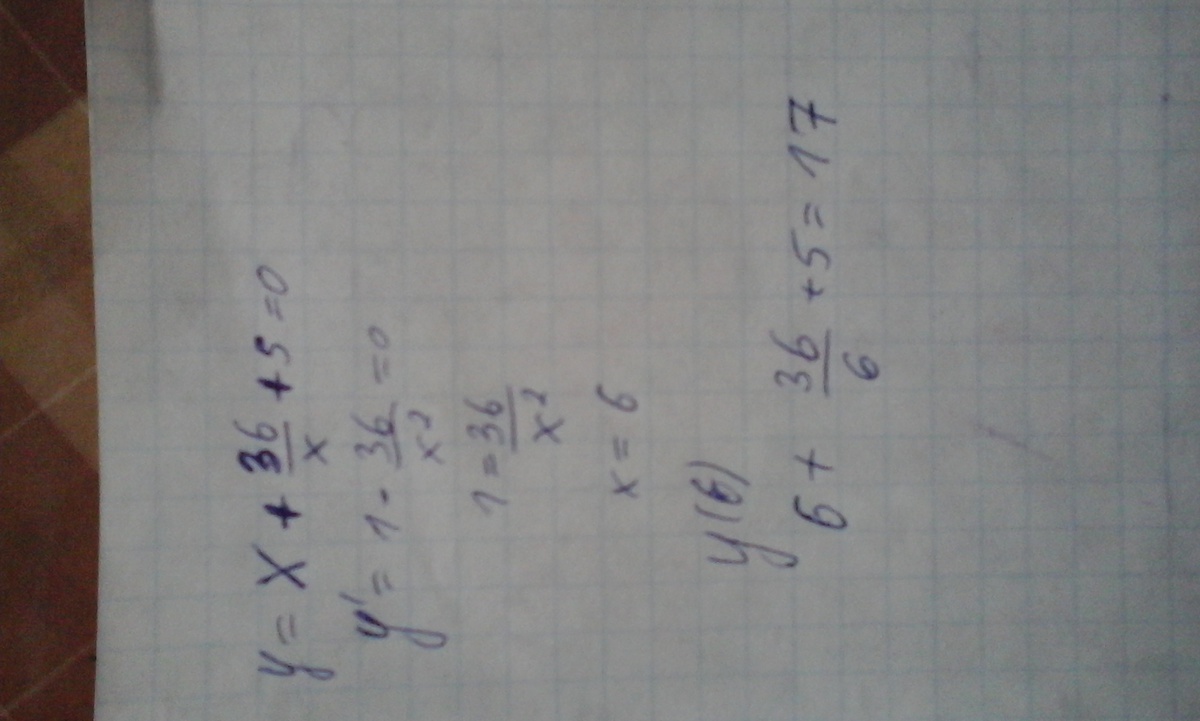 y = x + 36/x + 5 = 0
y' = 1 - 36/x² = 0
1 = 36/x²
x = 6
y(6)
6 + 36/6 + 5 = 17